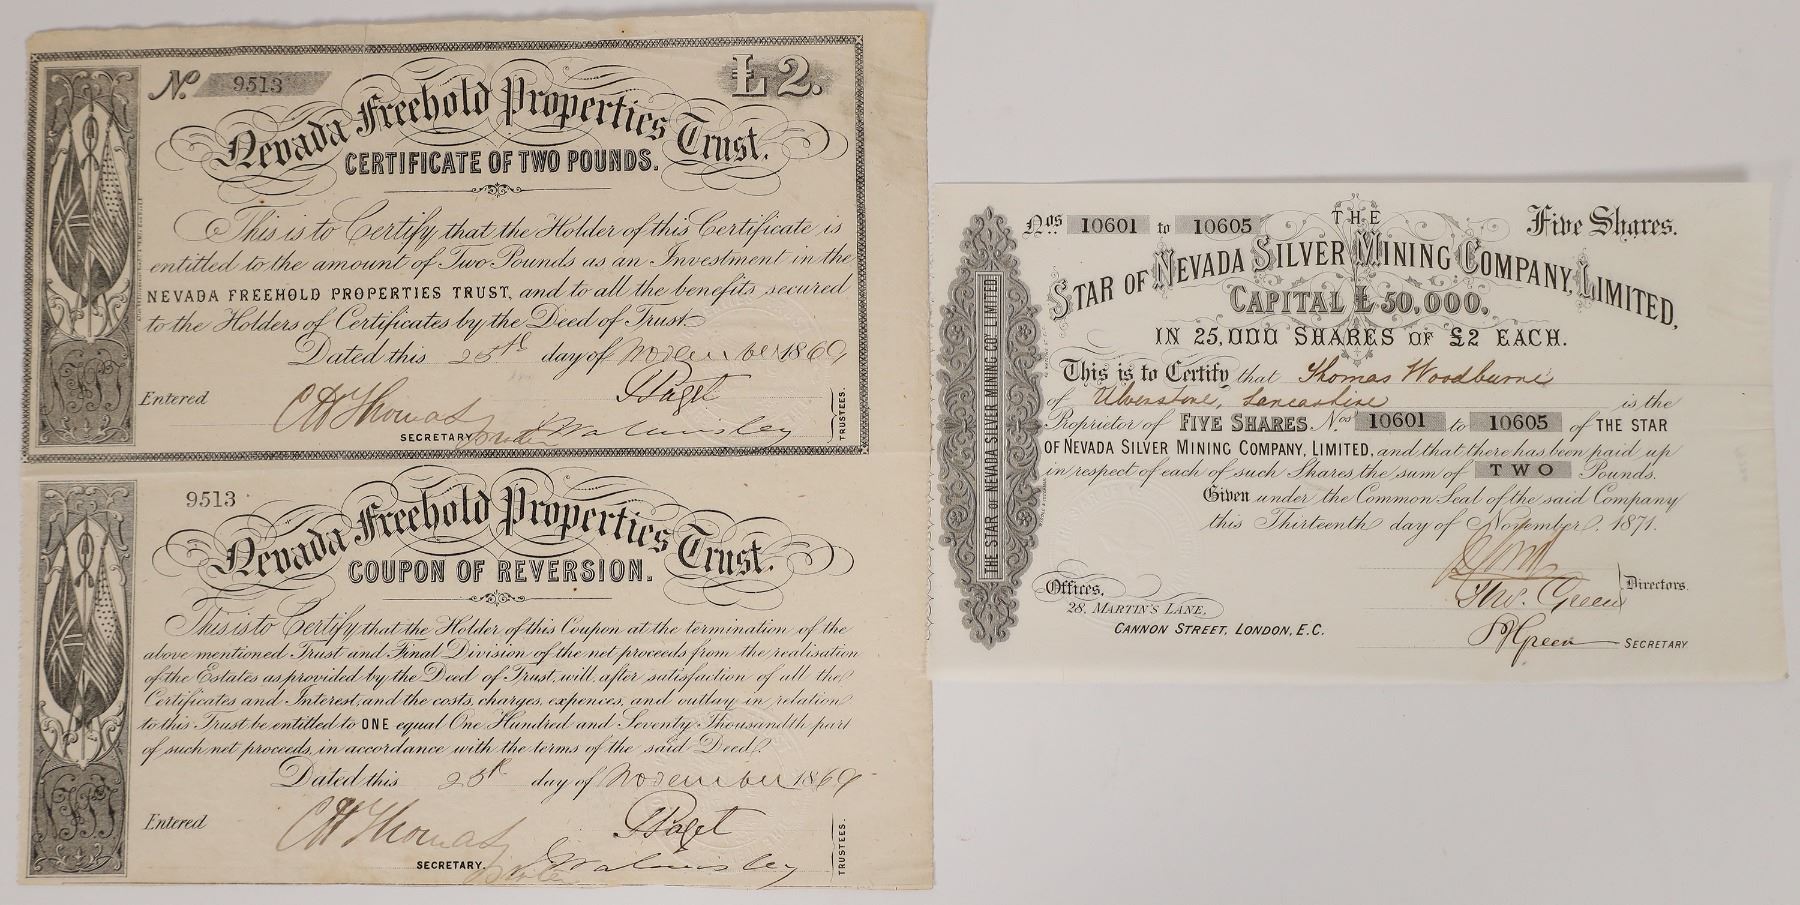 No. 9513
£2.
Nevada Freehold Properties Trust.
CERTIFICATE OF TWO POUNDS.
This is to Certify that the Holder of this Certificate is
entitled to the amount of Two Pounds as an Investment in the
NEVADA FREEHOLD PROPERTIES TRUST, and to all the benefits secured
to the Holders of Certificates by the Deed of Trust.
Dated this 25th day of November 1869
Entered
C H Thomas
SECRETARY.
Paget
Walmisley
TRUSTEES.
9513
Nevada Freehold Properties Trust.
COUPON OF REVERSION.
This is to Certify that the Holder of this Coupon at the termination of the
above mentioned Trust and Final Division of the net proceeds from the realisation
of the Estates as provided by the Deed of Trust, will, after satisfaction of all the
Certificates and Interest, and the costs, charges, expences, and outlay in relation
to this Trust be entitled to ONE equal One Hundred and Seventy Thousandth part
of such net proceeds, in accordance with the terms of the said Deed.
Dated this 25th day of November 1869
Entered
C H Thomas
SECRETARY.
Paget
Walmisley
TRUSTEES.
THE STAR OF NEVADA SILVER MINING CO. LIMITED
Nos 10601 to 10605
THE
Five Shares.
STAR OF NEVADA SILVER MINING COMPANY, LIMITED,
CAPITAL £50,000.
IN 25,000 SHARES OF £2 EACH.
This is to Certify that Thomas Woodburne
of Ulverstone, Lancashire is the
Proprietor of FIVE SHARES Nos 10601 to 10605 of THE STAR
OF NEVADA SILVER MINING COMPANY, LIMITED, and that there has been paid up
in respect of each of such Shares, the sum of TWO Pounds.
Given under the Common Seal of the said Company
this Thirteenth day of November, 1871.
Thos. Green
Directors.
Offices,
28, MARTIN'S LANE,
CANNON STREET, LONDON, E.C.
Green
SECRETARY